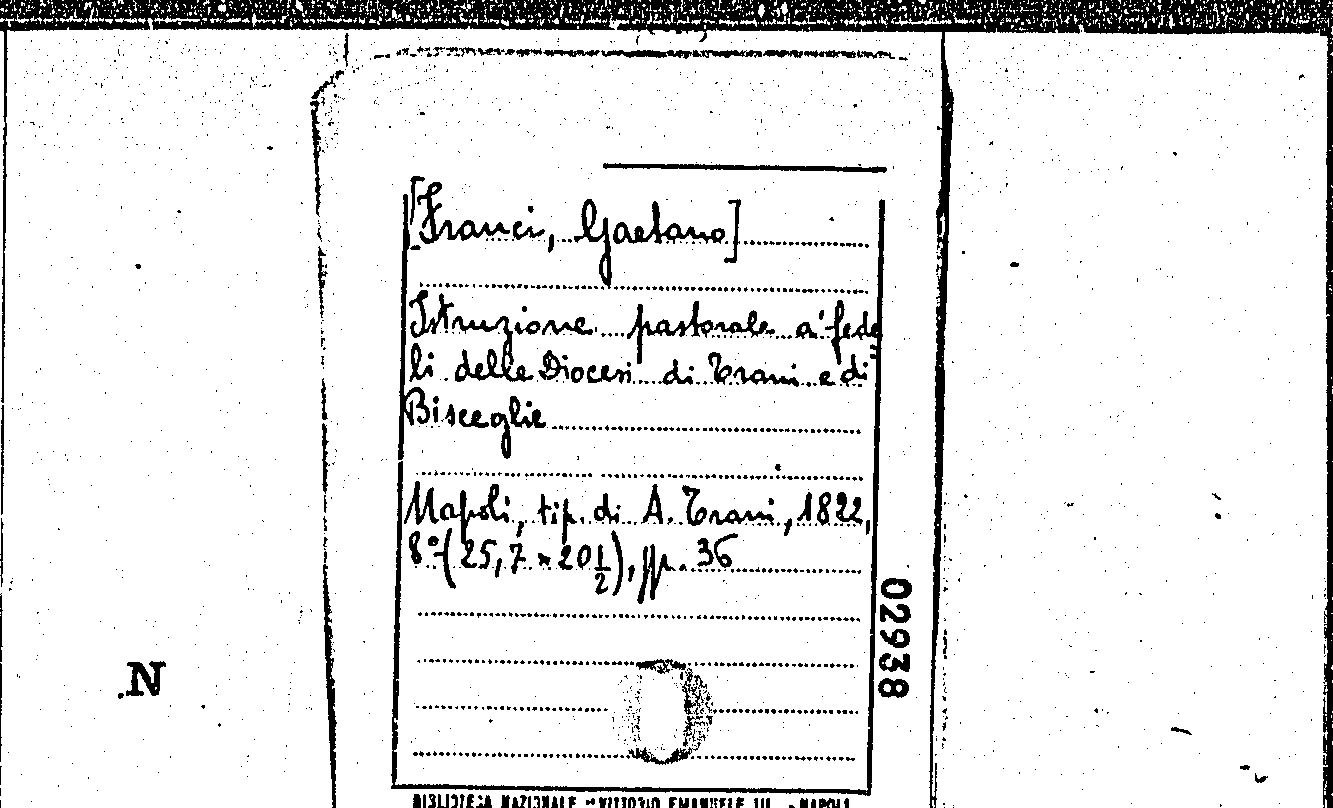 [Franci, Gaetano]
Istruzione pastorale a' fede
li delle Diocesi di Trani e di
Bisceglie
Napoli, tip. di A. Trani, 1822,
8° (25,7 × 20 1/2), pp. 36
02938
.N
BIBLIOTECA NAZIONALE "VITTORIO EMANUELE III" - NAPOLI